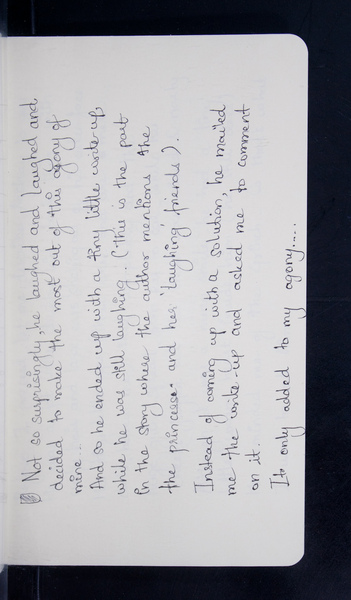 Not so surprisingly, he laughed and laughed and
decided to make the most out of this agony of
mine..
And so he ended up with a tiny little write-up,
while he was still laughing. (This is the part
in the story where the author mentions the
the princess and her 'laughing' friends).
Instead of coming up with a solution, he mailed
me the write-up and asked me to comment
on it.
It only added to my agony.....